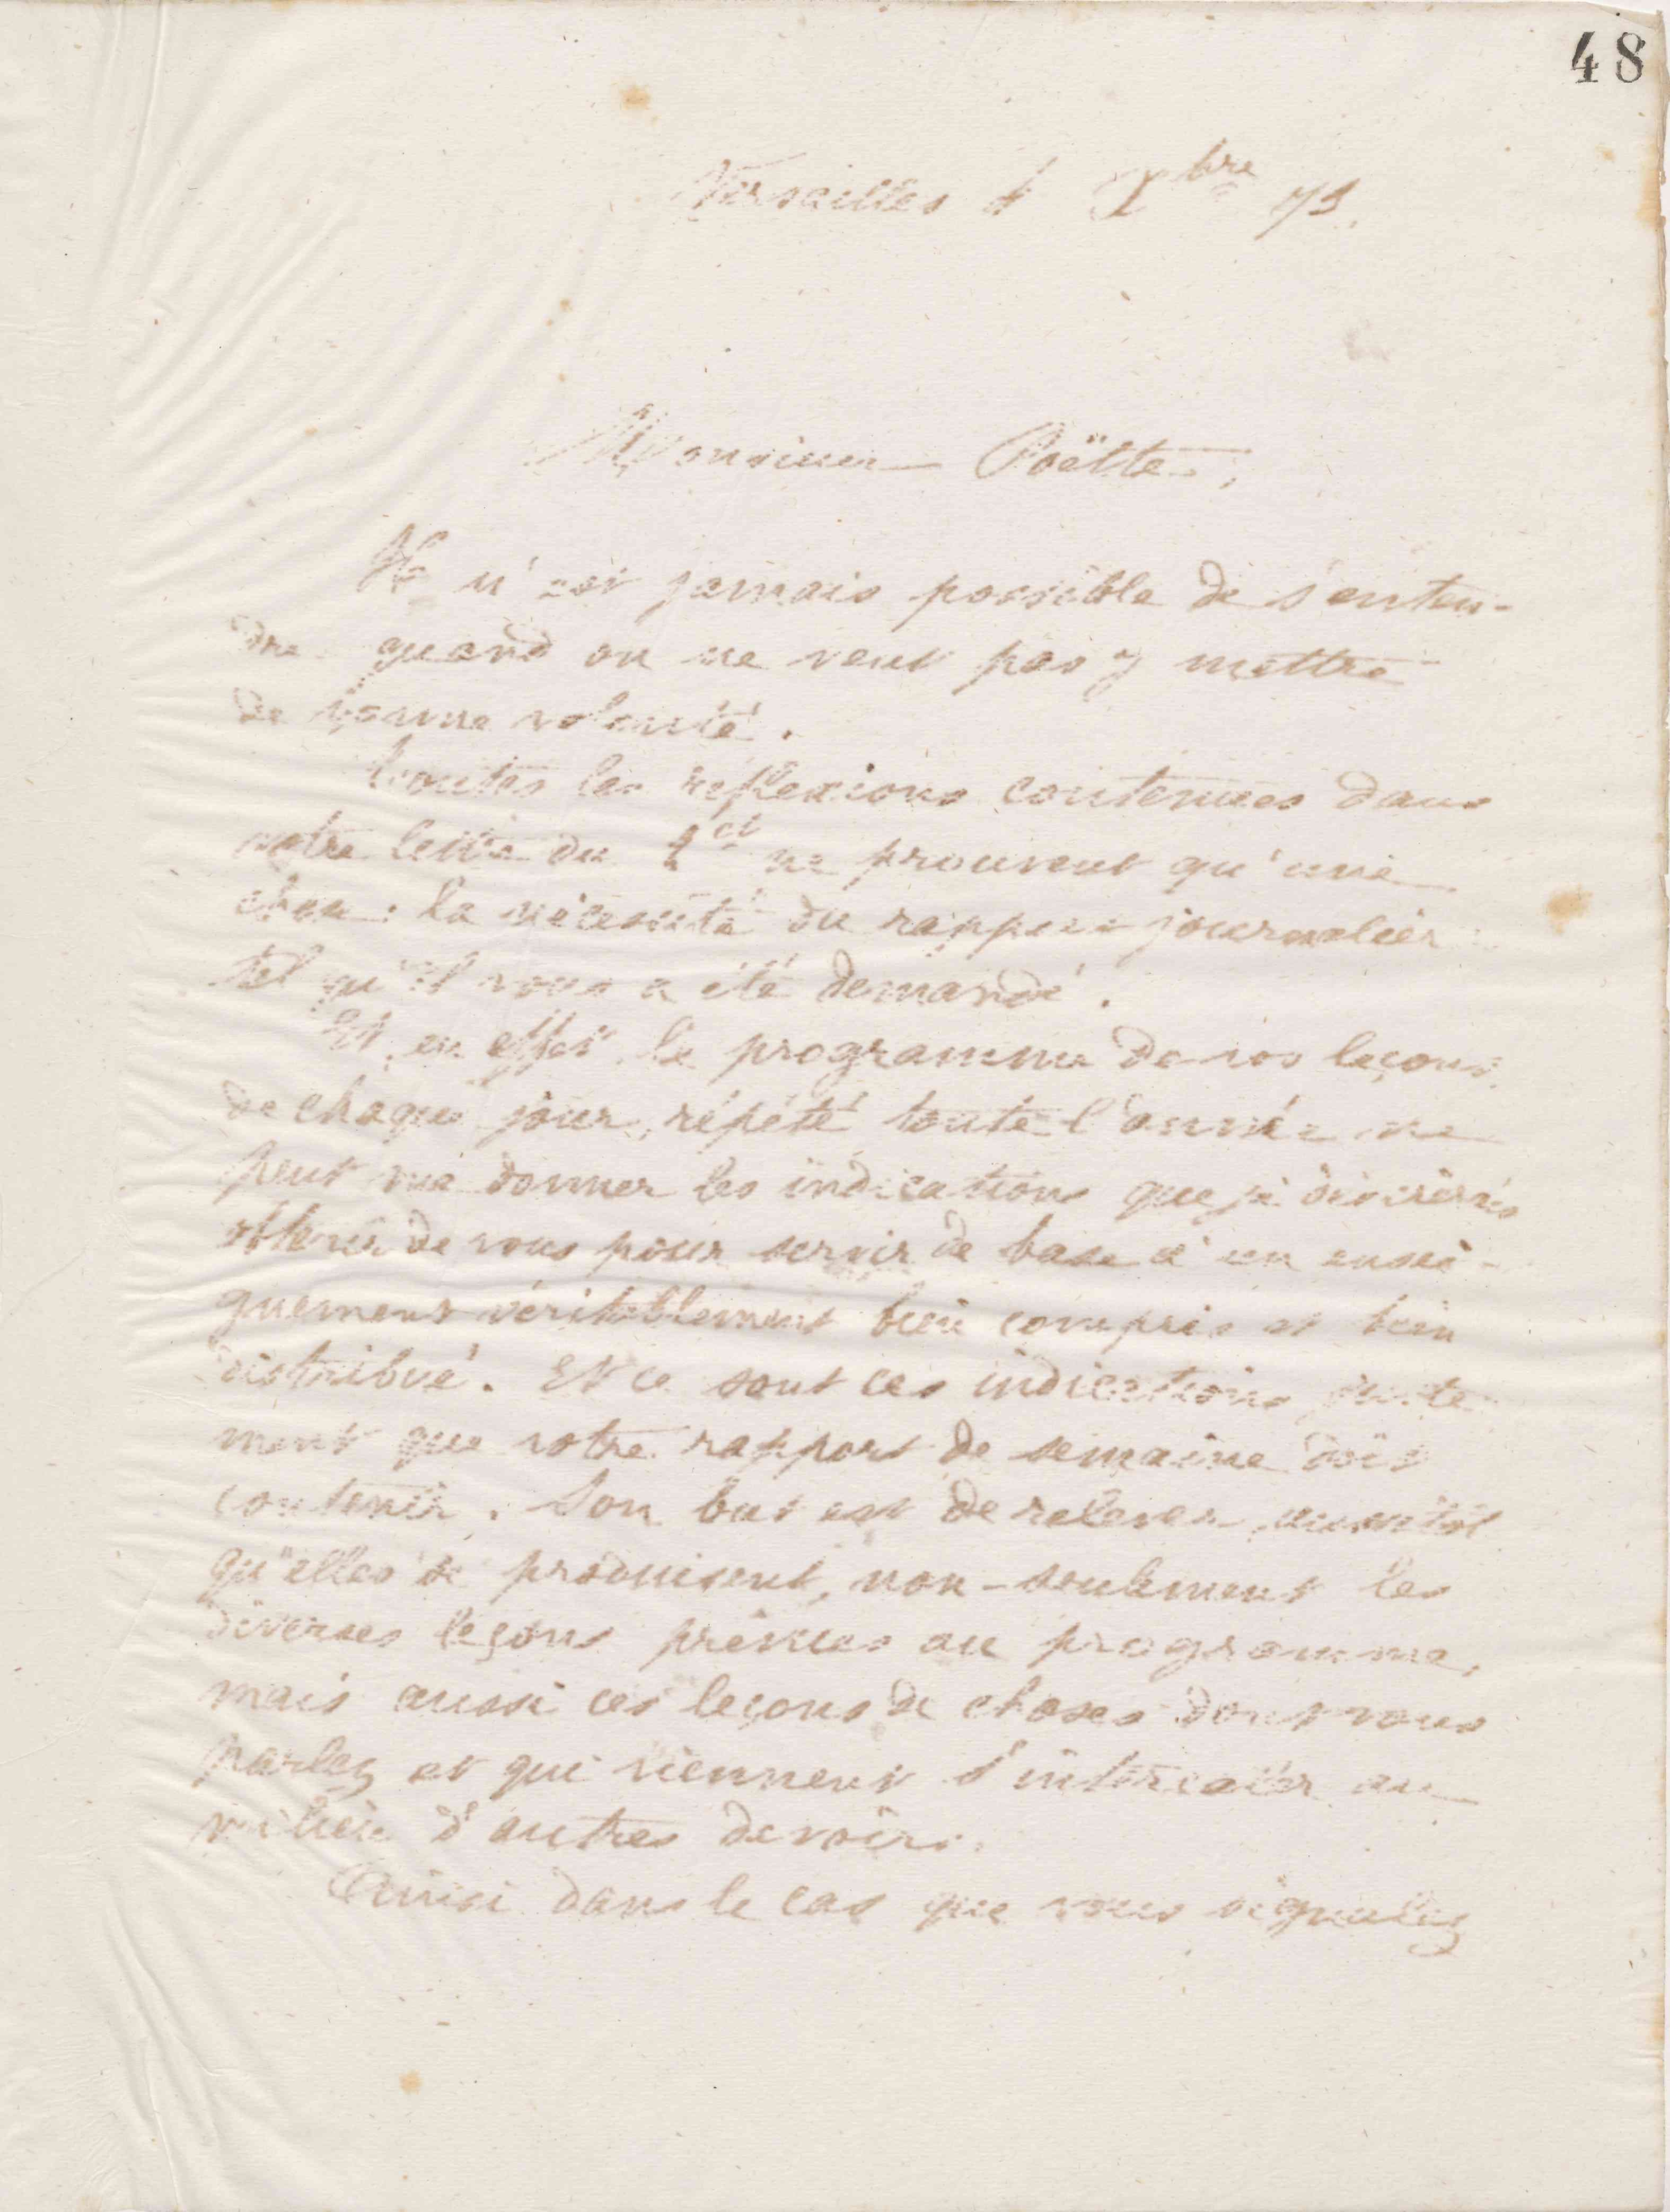 48
Versailles 6 Xbre 73.
Monsieur Poëtte,
Il n'est jamais possible de s'enten-
dre quand on ne veut pas y mettre
de bonne volonté.
Toutes les réflexions contenues dans
votre lettre du ct ne prouvent qu'une
chose : la nécessité du rapport journalier
tel qu'il vous a été demandé.
Et, en effet, le programme de vos leçons
de chaque jour, répété toute l'année ne
peut me donner les indications que je désirerais
obtenir de vous pour servir de base à un ensei-
gnement véritablement bien compris et bien
distribué. Et ce sont ces indications juste-
ment que votre rapport de semaine doit
contenir. Son but est de relever, aussitôt
qu'elles se produisent, non-seulement les
diverses leçons prévues au programme,
mais aussi ces leçons de choses dont vous
parlez et qui viennent s'intercaler au
milieu d'autres devoirs.
Ainsi dans le cas que vous signalez